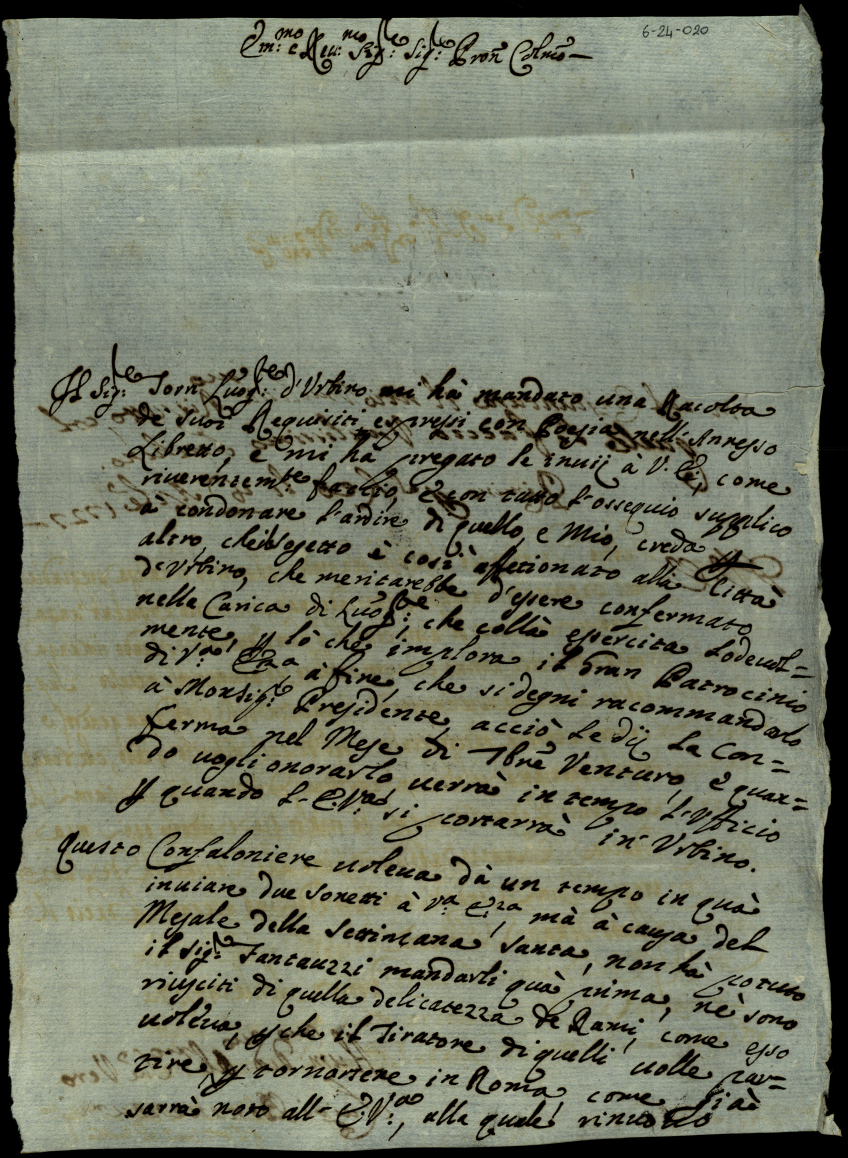 6-24-020
Em:mo e Reu:mo Sig:re Sig:re Pron Colmo
Il Sig:re Torn Luog:te d'Vrbino mi hà mandato una Racolta
de suoi Requisiti espressi con Poesia nell'Annesso
Libretto, e mi ha pregato le inuij à V. E., come
riuerentemte faccio, e con tutto l'ossequio supplico
à condonare l'ardire di quello, e Mio, creda
altro, che'l sogetto è così affetionato alla Città
d'Vrbino, che meritarebbe d'essere confermato
nella Carica di Luog:te, che collà esercita lodeuol=
mente, lò che implora il Gran Patrocinio
di V:ra Eza à fine, che si degni racommandarlo
à Monsig:r Presidente, acciò le dij la Con=
ferma nel Mese di 7bre Venturo, e quan=
do uogli onorarlo, uerrà in tempo l'Vfficio
quando L'E. V:ra si portarrà in Vrbino.
Questo Confaloniere uoleua dà un tempo in quà
inuiare due sonetti à V:ra Eza, mà à causa del
Messale della settimana santa, non hà potuto
il sig:re Fantauzzi mandarli quà prima, nè sono
riusciti di quella delicatezza de Rami, come esso
uoleua, che il Tiratore di quelli uolle par=
tire, tornarsene in Roma, come già
sarrà noto all'E. V:ra, alla quale